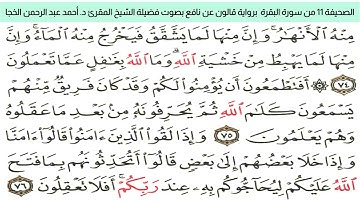 الصحيفة 11 من سورة البقرة برواية قالون عن نافع بصوت فضيلة الشيخ المقرئ د. أحمد عبد الرحمن الخجا
مِنْهُ اُ۬لْأَنْهَٰرُۖ وَإِنَّ مِنْهَا لَمَا يَشَّقَّقُ فَيَخْرُجُ مِنْهُ اُ۬لْمَآءُۖ
وَإِنَّ مِنْهَا لَمَا يَهْبِطُ مِنْ خَشْيَةِ اِ۬للَّهِۖ وَمَا اَ۬للَّهُ بِغَٰفِلٍ عَمَّا تَعْمَلُونَ
٧٤ أَفَتَطْمَعُونَ أَنْ يُؤْمِنُوا لَكُمْ وَقَدْ كَانَ فَرِيقٌ مِّنْهُمْ
يَسْمَعُونَ كَلَٰمَ اَ۬للَّهِ ثُمَّ يُحَرِّفُونَهُۥ مِنۢ بَعْدِ مَا عَقَلُوهُ
وَهُمْ يَعْلَمُونَ ٧٥ وَإِذَا لَقُوا اُ۬لَّذِينَ ءَامَنُوا قَالُوا ءَامَنَّا
وَإِذَا خَلَا بَعْضُهُمْ إِلَىٰ بَعْضٍ قَالُوا أَتُحَدِّثُونَهُم بِمَا فَتَحَ
اَ۬للَّهُ عَلَيْكُمْ لِيُحَآجُّوكُم بِهِۦ عِندَ رَبِّكُمْۖ أَفَلَا تَعْقِلُونَ ٧٦